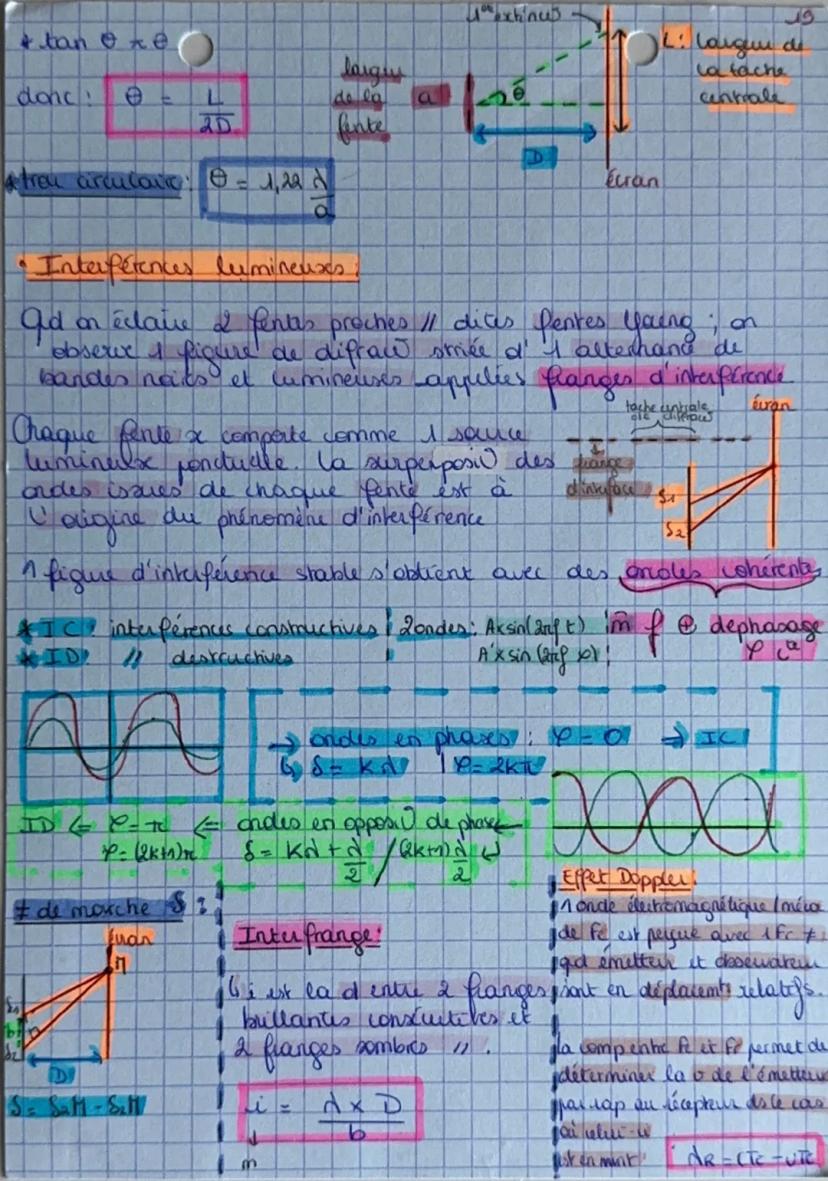 19
* tan θ ≈ θ
donc : θ = L / 2D
1ère extinc°
largeur de la fente a
θ
D
écran
L : largeur de la tache centrale
* trou circulaire : θ = 1,22 λ / a
• Interférences lumineuses :
Qd on éclaire 2 fentes proches // dites fentes Young ; on
observe 1 figure de difrac° striée d' 1 alternance de
bandes noires et lumineuses appelées franges d'interférence
Chaque fente se comporte comme 1 source
lumineuse ponctuelle. La surperposi° des
ondes issues de chaque fente est à
l'origine du phénomène d'interférence
tache centrale
frange
écran
S1
S2
1 figure d'interférence stable s'obtient avec des ondes cohérentes
* IC : interférences constructives
* ID : // destructives
2 ondes : A x sin(2πf t)
m̂ f ⊕ dephasage
φ
→ ondes en phases : φ = 0 ⇒ IC
↳ δ = kλ | φ = 2kπ
ID ⇐ φ = π ⇐ ondes en opposi° de phase
φ = (2k+1)π
δ = kλ + λ/2 / (2k+1) λ/2
≠ de marche δ :
écran
M
S1
b
S2
D
Interfrange :
↳ i est la d entre 2 franges
brillantes consécutives et
2 franges sombres //.
i = λ x D / b
m
Effet Doppler :
1 onde électromagnétique / méca
de Fe est perçue avec 1 Fr ≠
qd émetteur et observateur
sont en déplacemt relatifs.
la comp entre Fe et Fr permet de
déterminer la v de l'émetteur
par rap au récepteur ds le cas
où celui-ci